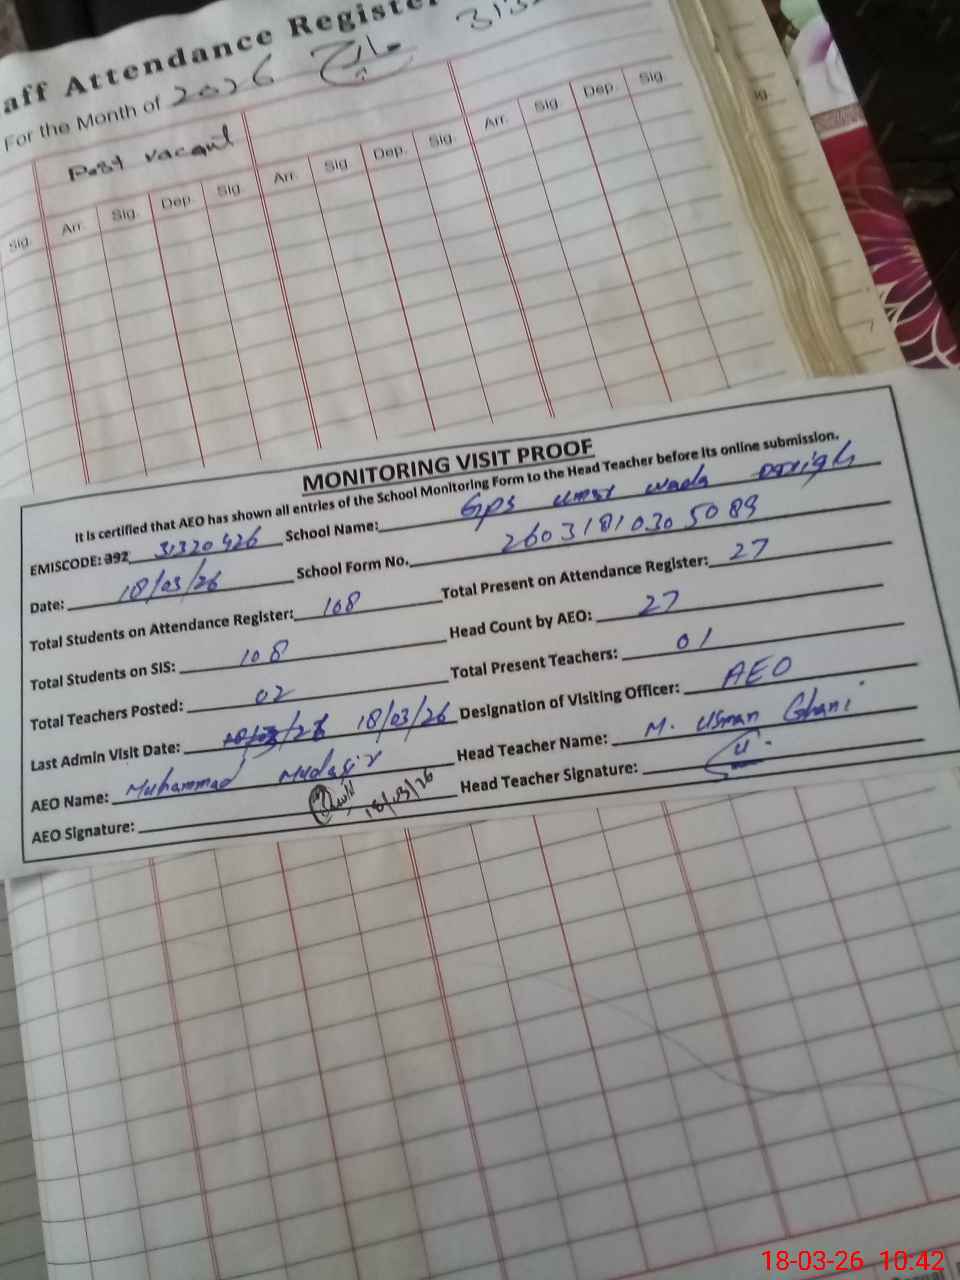 aff Attendance Register
For the Month of 2026 مارچ 3132
Post vacant
Sig. Arr. Sig. Dep. Sig. Arr. Sig. Dep. Sig. Arr. Sig. Dep. Sig.
MONITORING VISIT PROOF
It is certified that AEO has shown all entries of the School Monitoring Form to the Head Teacher before its online submission.
EMISCODE: 392 31320426 School Name: Gps Umar wada
Date: 18/03/26 School Form No. 2603181030 5089
Total Students on Attendance Register: 108 Total Present on Attendance Register: 27
Total Students on SIS: 108 Head Count by AEO: 27
Total Teachers Posted: 02 Total Present Teachers: 01
Last Admin Visit Date: 18/03/26 Designation of Visiting Officer: AEO
AEO Name: Muhammad Mudasir Head Teacher Name: M. Usman Ghani
AEO Signature: 18/03/26 Head Teacher Signature:
18-03-26 10:42